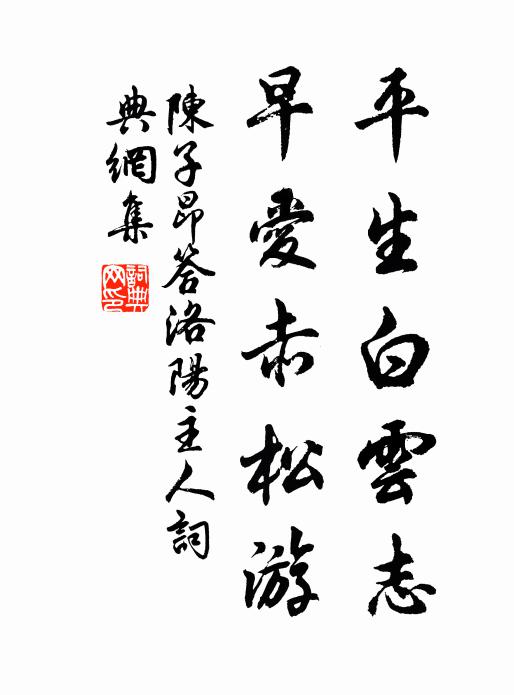 平生白雲志
早愛赤松游
陳子昂答洛陽主人詞
典網集
詞典
网印